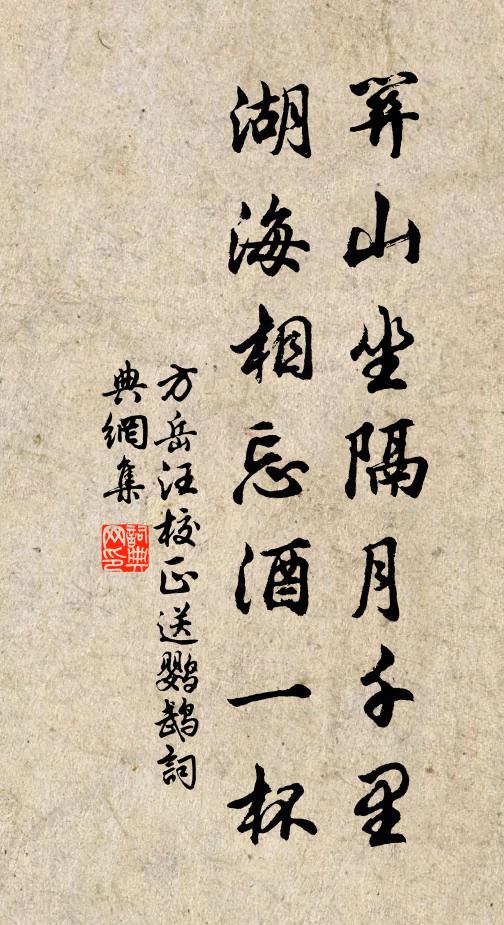 關山坐隔月千里
湖海相忘酒一杯
方岳汪校正送鸚鵡詞
典網集
詞典
网印